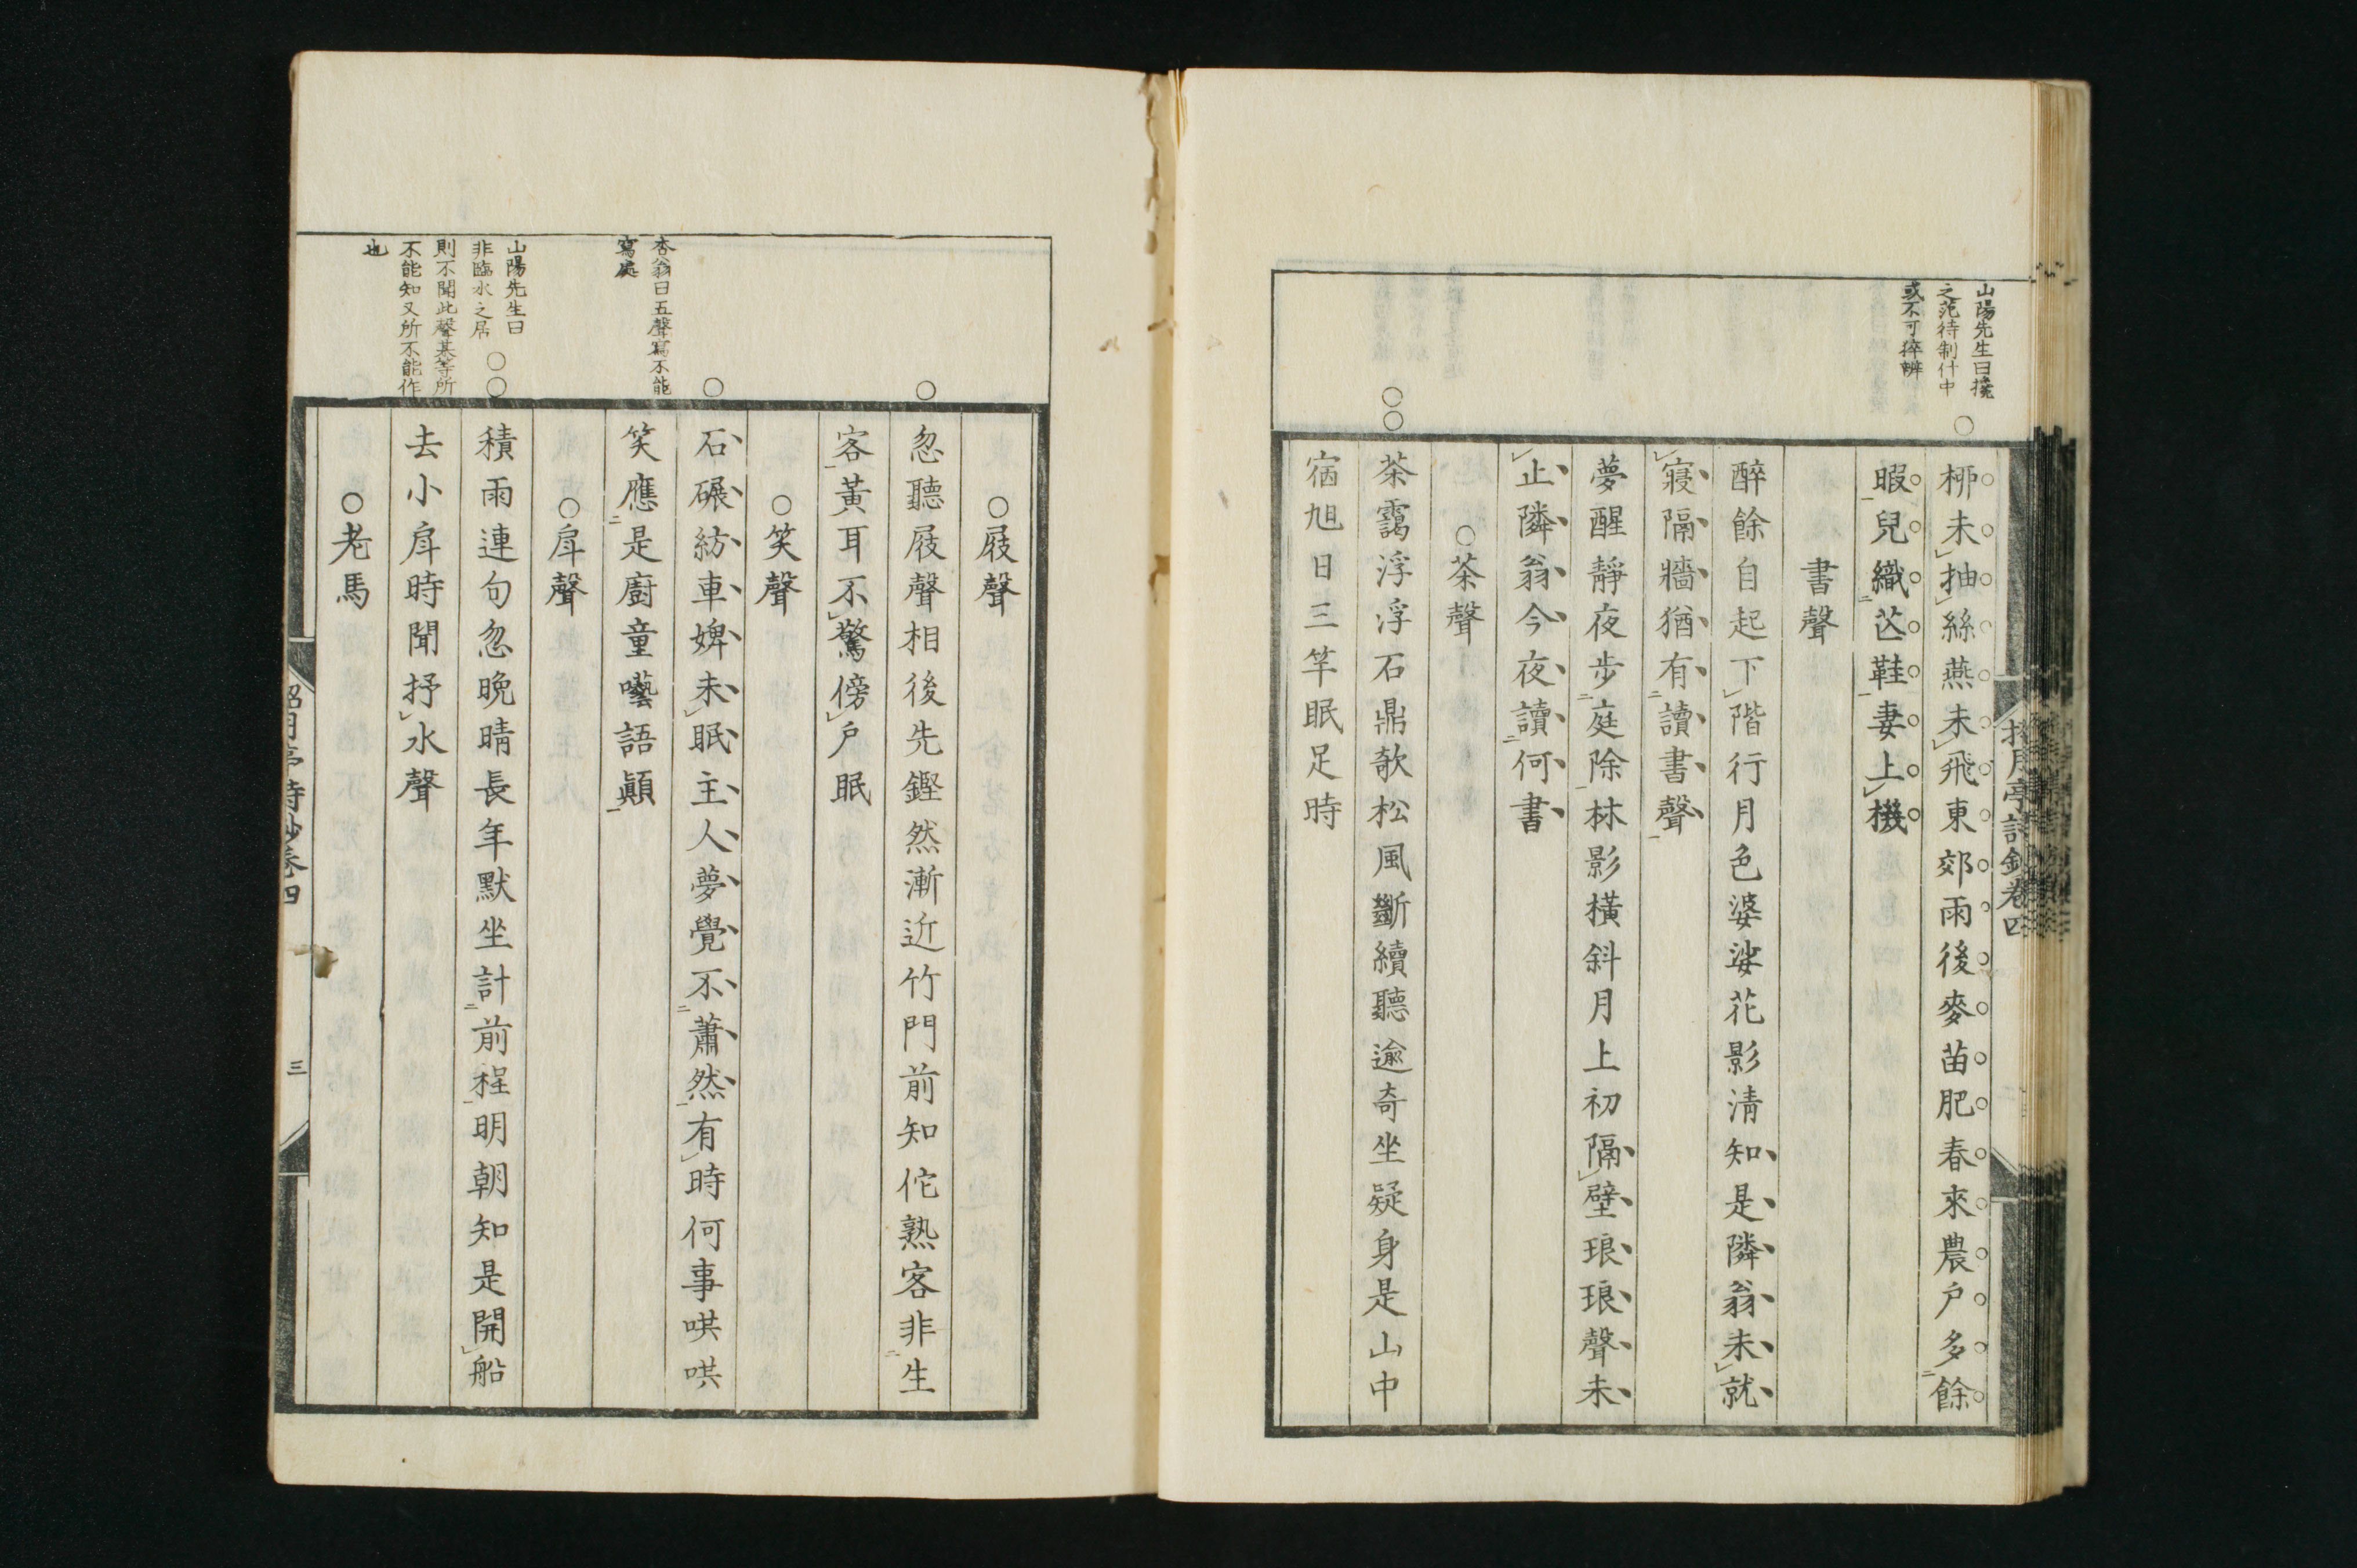 山陽先生曰擬
之范待制什中
或不可猝辨
桺未抽絲燕未飛東郊雨後麥苗肥春來農戶多餘
暇兒織芒鞋妻上機
書聲
醉餘自起下階行月色婆娑花影清知是隣翁未就
寢隔牆猶有讀書聲
夢醒靜夜步庭除林影橫斜月上初隔壁琅琅聲未
止隣翁今夜讀何書
○茶聲
茶靄浮浮石鼎欹松風斷續聽逾奇坐疑身是山中
宿旭日三竿眠足時
杏翁曰五聲寫不能
寫處
山陽先生曰
非臨水之居
則不聞此聲某等所
不能知又所不能作
也
○屐聲
忽聽屐聲相後先鏗然漸近竹門前知佗熟客非生
客黃耳不驚傍戶眠
○笑聲
石碾紡車婢未眠主人夢覺不蕭然有時何事哄哄
笑應是廚童囈語顚
○戽聲
積雨連句忽晩晴長年默坐計前程明朝知是開船
去小戽時聞抒水聲
○老馬
招月亭詩鈔卷四
三